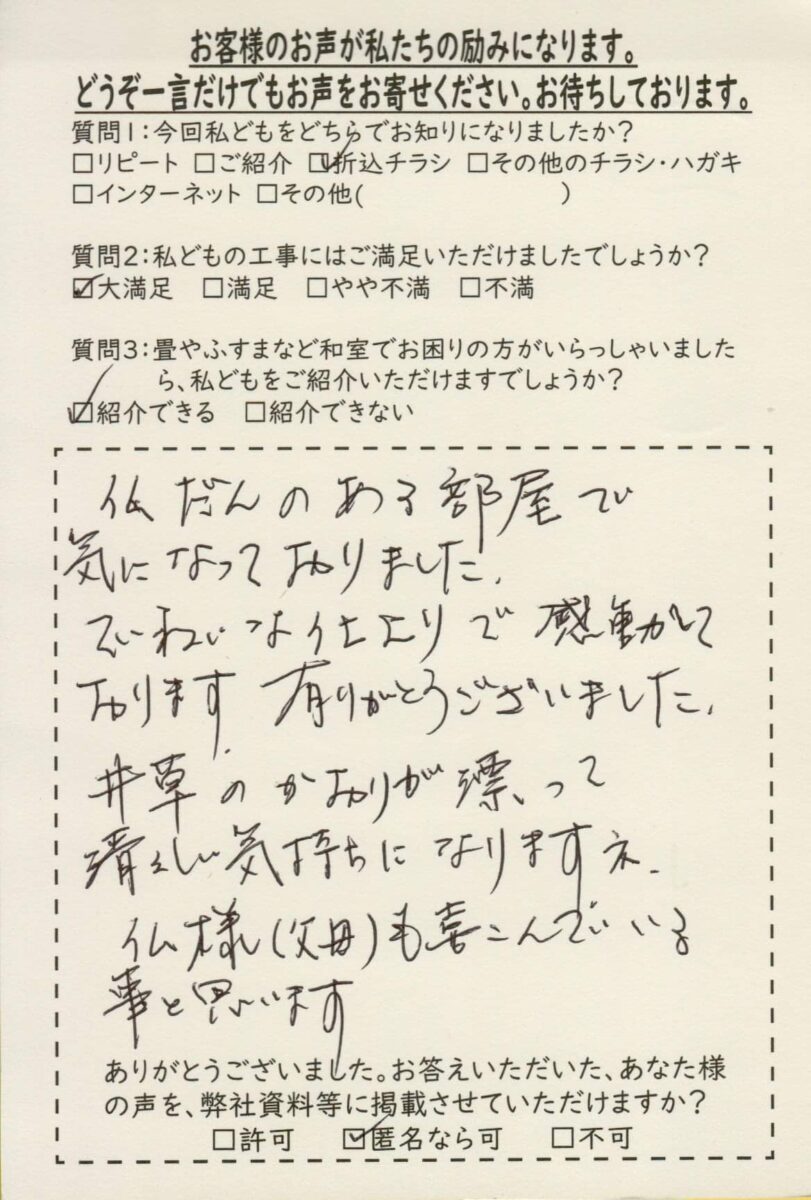 お客様のお声が私たちの励みになります。
どうぞ一言だけでもお声をお寄せください。お待ちしております。
質問1:今回私どもをどちらでお知りになりましたか?
□リピート □ご紹介 ☑折込チラシ □その他のチラシ・ハガキ
□インターネット □その他( )
質問2:私どもの工事にはご満足いただけましたでしょうか?
☑大満足 □満足 □やや不満 □不満
質問3:畳やふすまなど和室でお困りの方がいらっしゃいました
ら、私どもをご紹介いただけますでしょうか?
☑紹介できる □紹介できない
仏だんのある部屋で
気になっておりました。
ていねいな仕上りで感動して
おります。有りがとうございました。
井草のかおりが漂って
清々しい気持ちになりますネ。
仏様(父母)も喜こんでいる
事と思います
ありがとうございました。お答えいただいた、あなた様
の声を、弊社資料等に掲載させていただけますか?
□許可 ☑匿名なら可 □不可